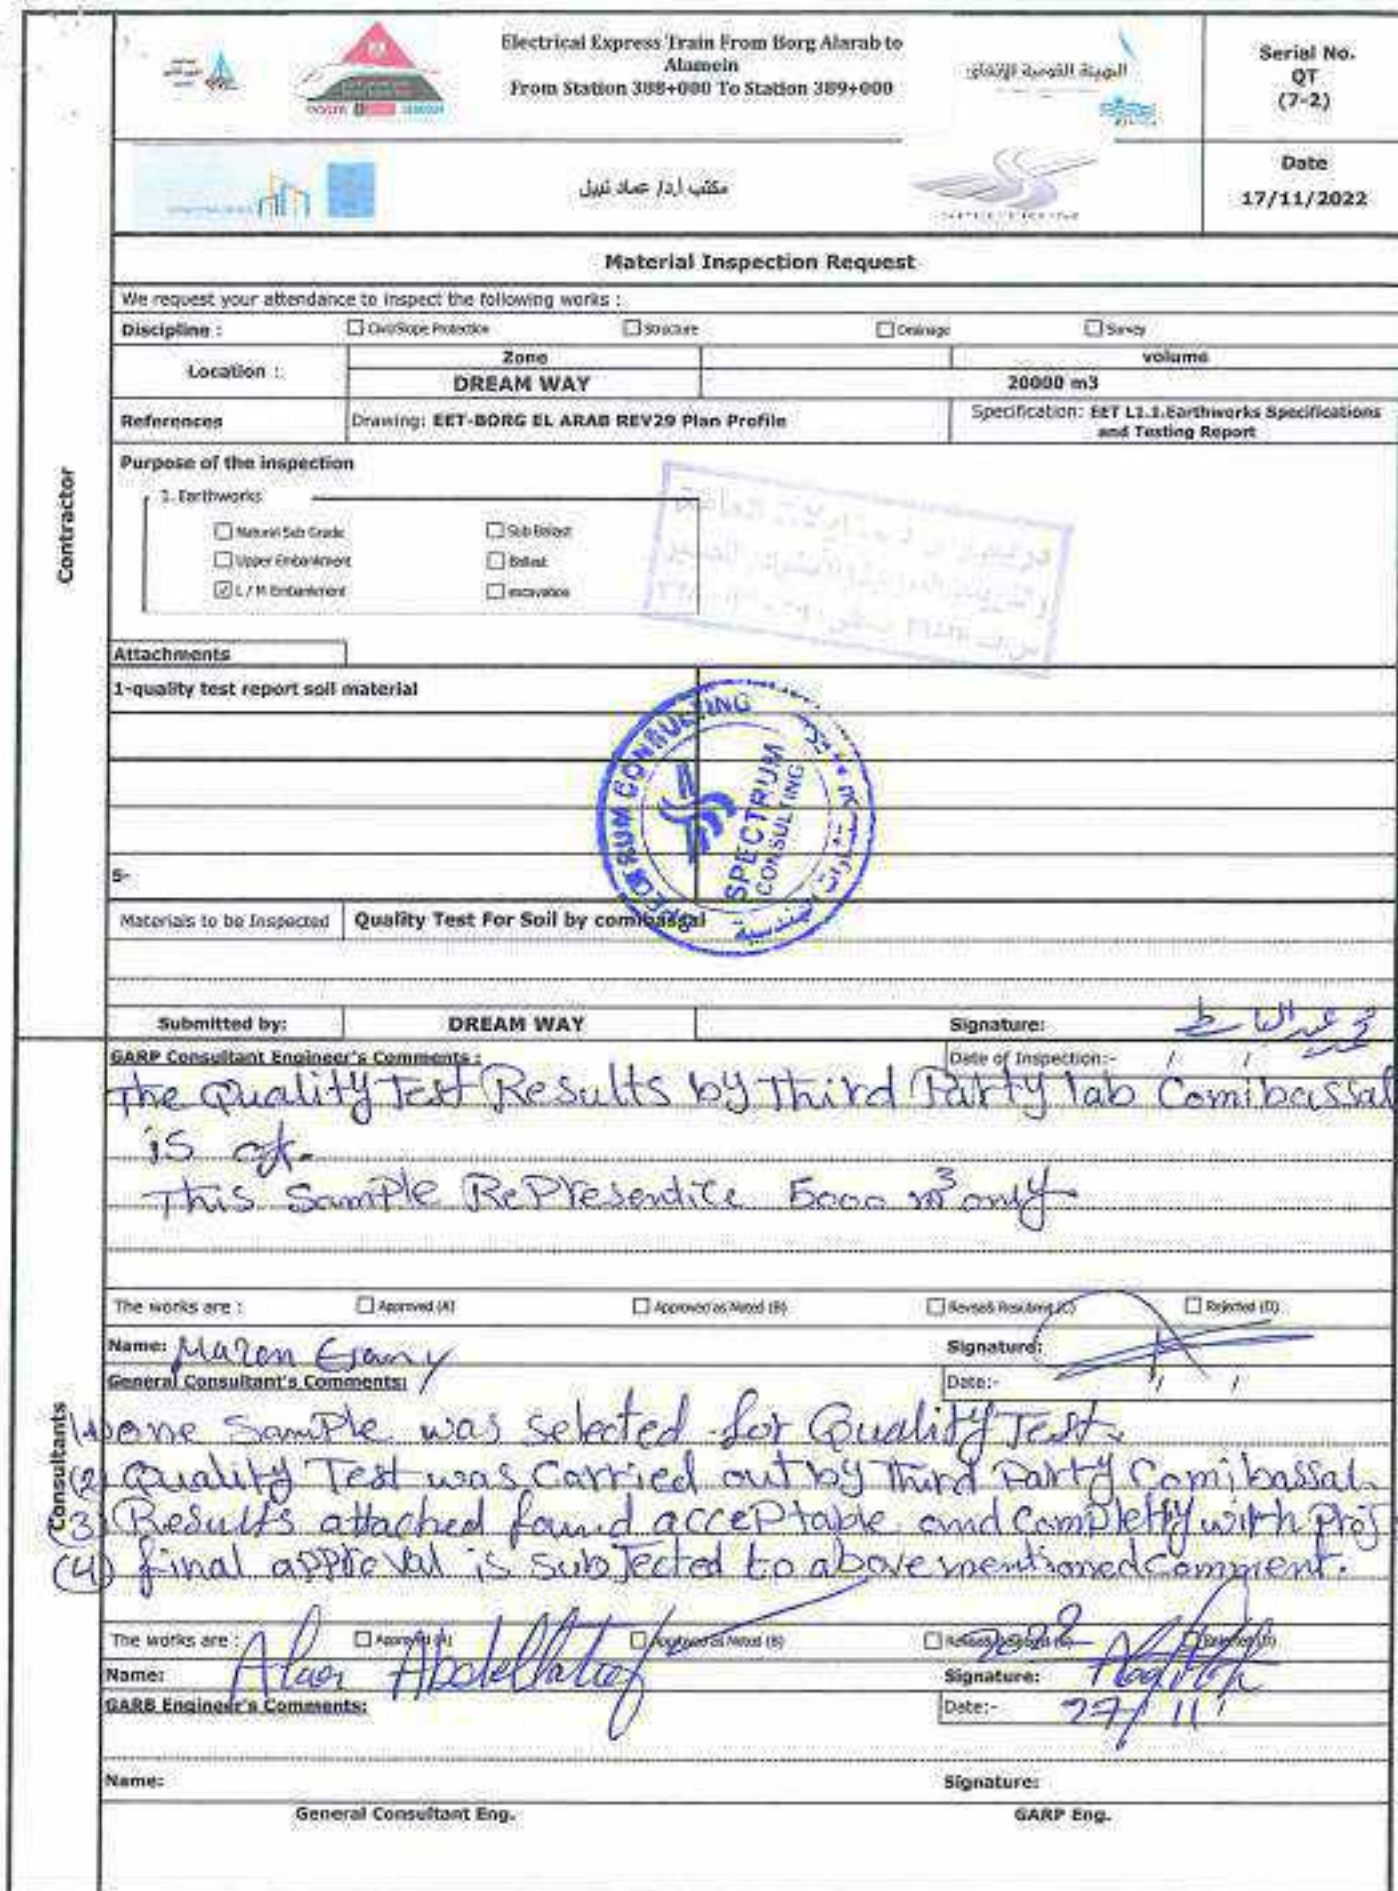 Electrical Express Train From Borg Alarab to
Alamein
From Station 388+000 To Station 389+000
الهيئة القومية للإنفاق
Serial No.
QT
(7-2)
مكتب ا.د/ عماد نبيل
Date
17/11/2022
Material Inspection Request
We request your attendance to inspect the following works :
Discipline : Civil/Slope Protection Structure Drainage Survey
Location : Zone volume
DREAM WAY 20000 m3
References Drawing: EET-BORG EL ARAB REV29 Plan Profile Specification: EET L1.1.Earthworks Specifications
and Testing Report
Contractor
Purpose of the inspection
1. Earthworks
Natural Sub Grade Sub Ballast
Upper Embankment Ballast
L / M Embankment excavation
Attachments
1-quality test report soil material
SPECTRUM CONSULTING
SPECTRUM
CONSULTING
5-
Materials to be Inspected Quality Test For Soil by comibassal
Submitted by: DREAM WAY Signature:
GARP Consultant Engineer's Comments : Date of Inspection:- / /
The Quality Test Results by Third Party lab Comibassal
is ok.
This Sample RePresentice 5000 m3 only
The works are : Approved (A) Approved as Noted (B) Revise& Resubmit (C) Rejected (D)
Name: Mazen Signature:
General Consultant's Comments: Date:- / /
Consultants
(1) one Sample was selected for Quality Test.
(2) Quality Test was Carried out by Third Party Comibassal
(3) Results attached found acceptable and Completly with Proj
(4) final approval is subjected to above mentioned Comment.
The works are : Approved (A) Approved as Noted (B) Rejected (D)
2022
Name: Alaa Abdellatief Signature:
GARB Engineer's Comments: Date:- 27/11/
Name: Signature:
General Consultant Eng. GARP Eng.